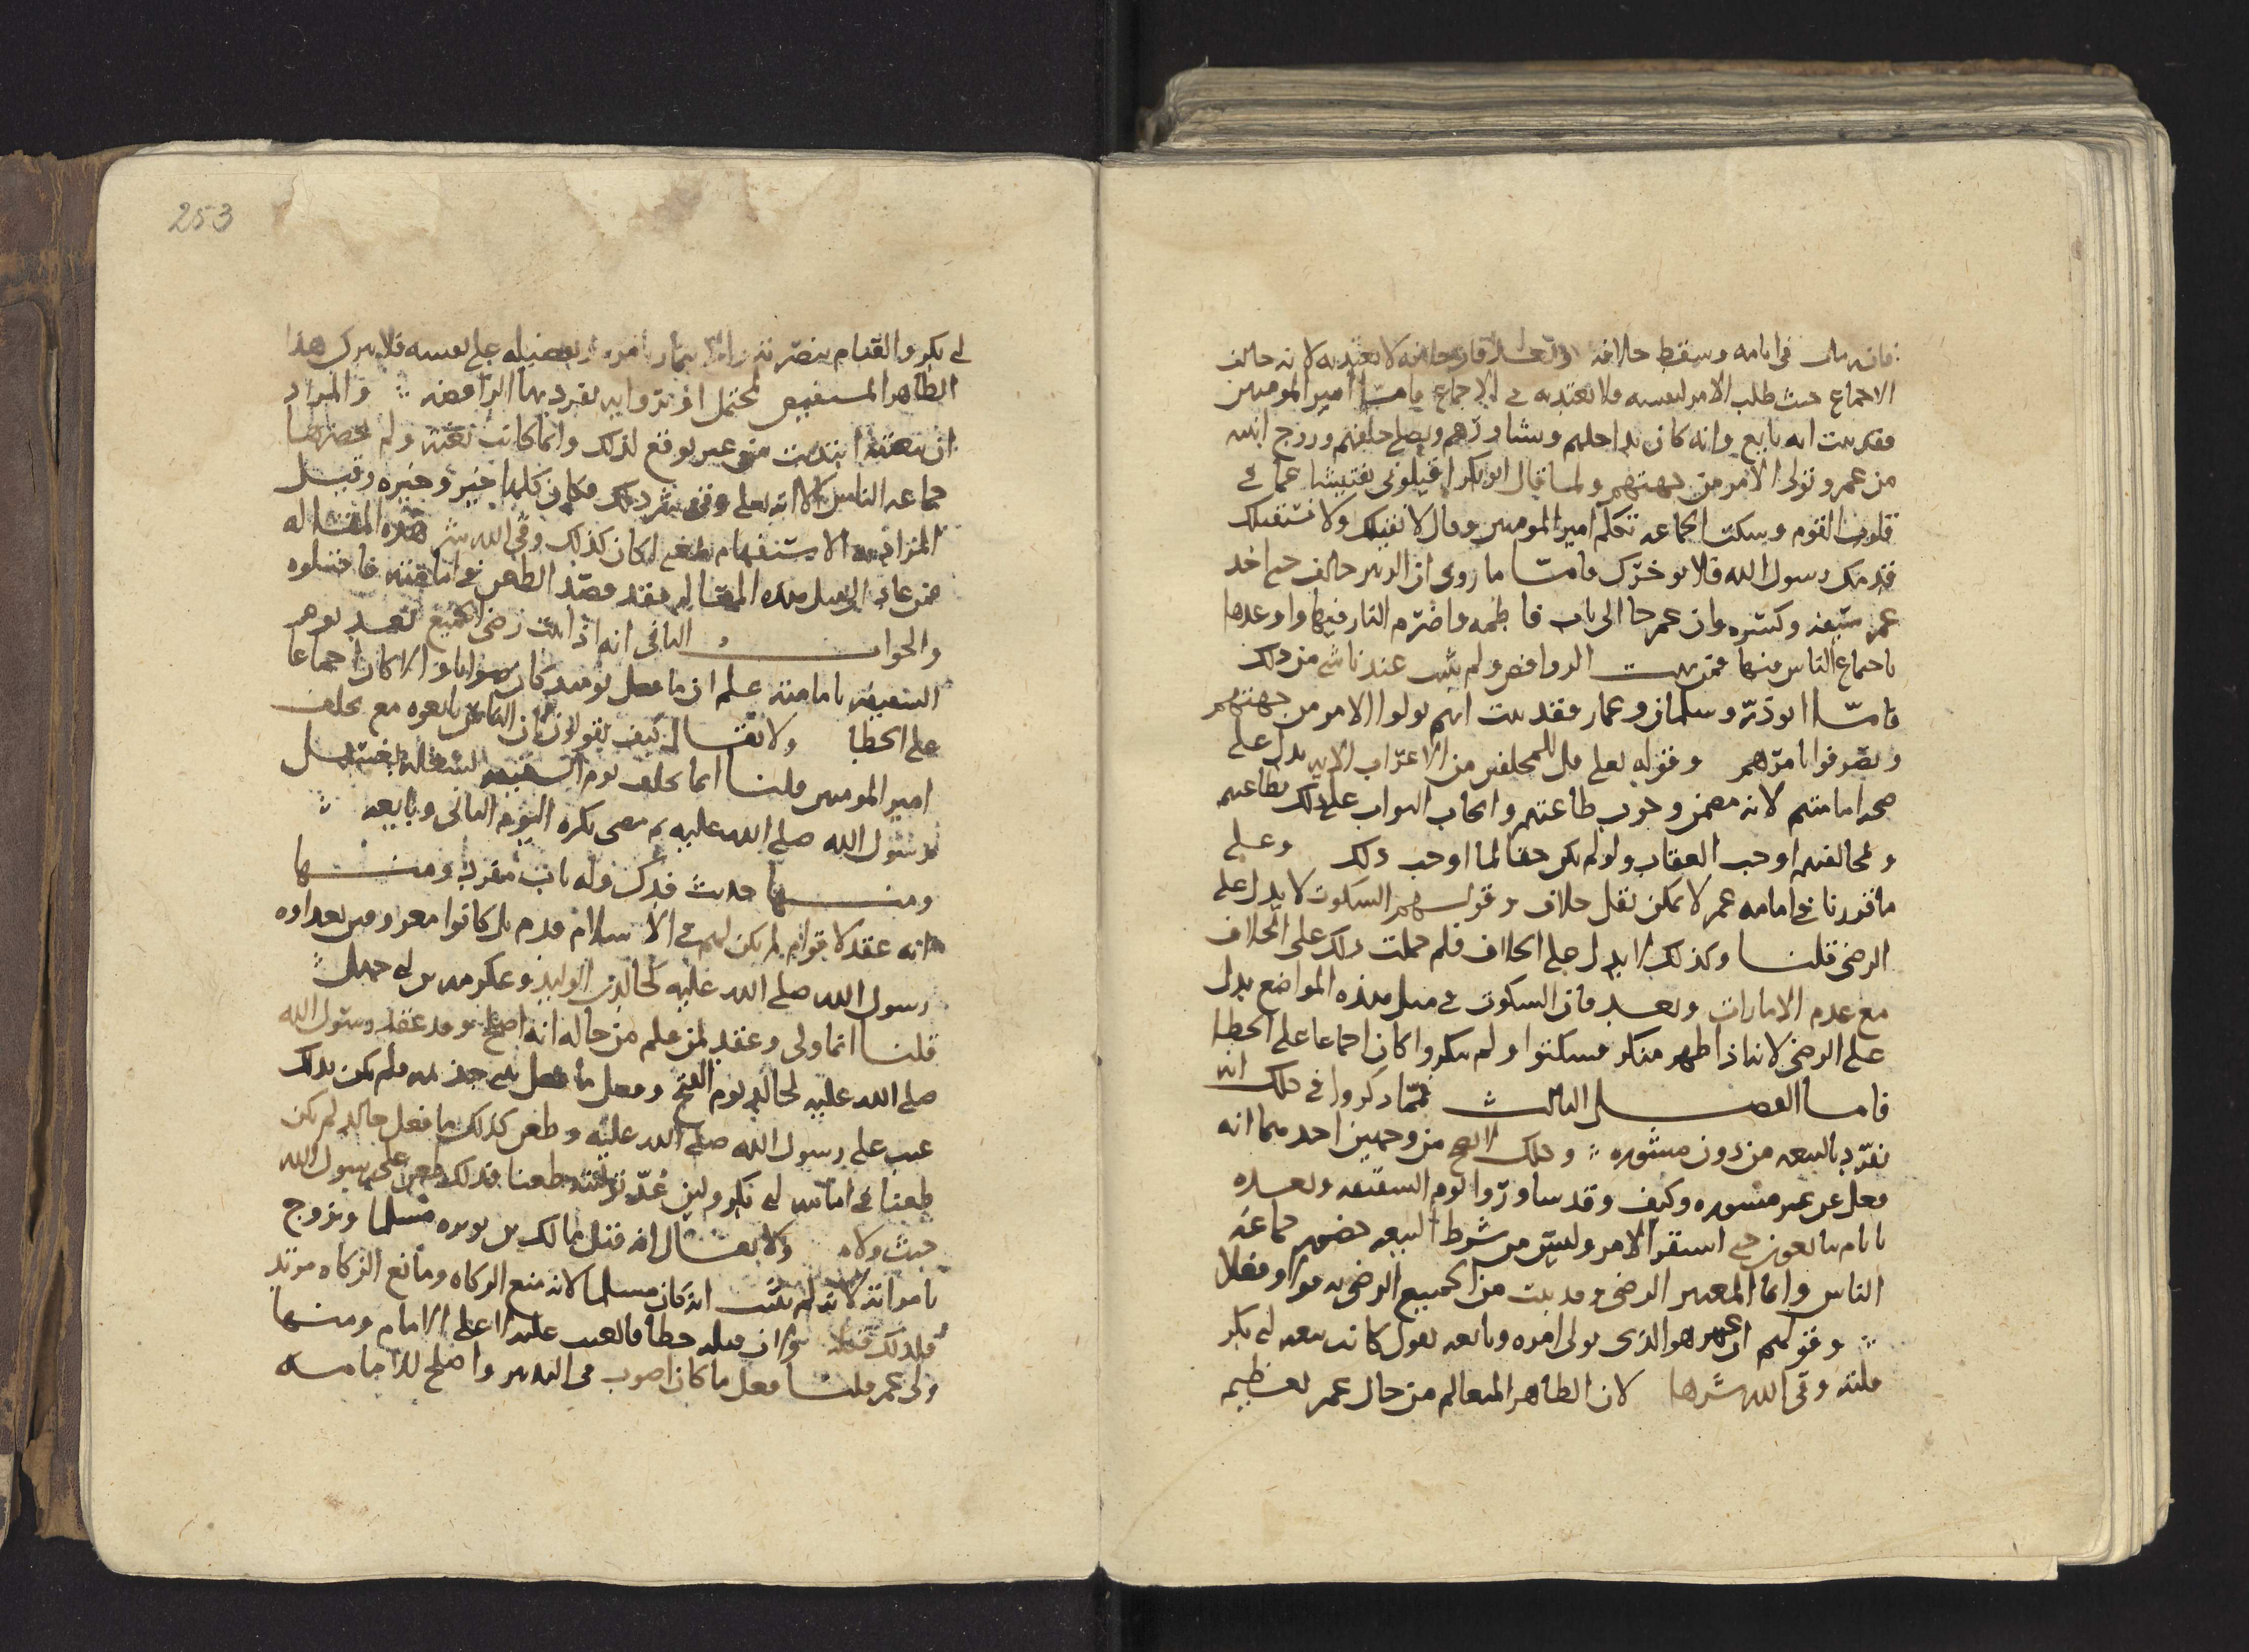 فانه مات في ايامه وسقط خلافه وبعد فان خلافه لا يعتد به لانه خالف
الاجماع حيث طلب الامر لنفسه فلا يعتد به في الاجماع فامـا امير المومنين
فقد ثبت انه بايع وانه كان يداخلهم ويشاورهم ويصلي خلفهم وزوج ابنته
من عمر وتولى الامر من جهتهم ولما قال ابو بكر اقيلوني تفتيشا عما في
قلوب القوم وسكت الجماعه تكلم امير المومنين وقال لا نقيلك ولا نستقيلك
قدمك رسول الله فلا يوخرك فامـا ما روي ان الزبير خالف حتى اخذ
عمر سيفه وكسره وان عمر جا الى باب فاطمه واضرم النار فيها واوعدها
باجماع الناس فيها فمن الروافض ولم يثبت عندنا شي من ذلك
فامـا ابو ذر وسلمان وعمار فقد ثبت انهم تولوا الامر من جهتهم
وتصرفوا بامرهم وقوله تعالى قل للمخلفين من الاعراب الايه يدل على
صحه امامتهم لانه تضمن وجوب طاعتهم وايجاب الثواب على ذلك بطاعتهم
ولمخالفتهم اوجب العقاب ولو لم يكن حقا لما اوجب ذلك وعلى
ما قررنا في امامه عمر لا يمكن نقل خلاف وقولـهم السكوت لا يدل على
الرضى قلنـا وكذلك لا يدل على الخلاف فلم حملت ذلك على الخلاف
مع عدم الامارات وبعـد فان السكوت في مثل هذه المواضع يدل
على الرضى لانه اذا ظهر منكر فسكتوا ولم ينكروا كان اجماعا على الخطا
فامـا الفصـل الثالث فممـا ذكروا في ذلك انه
تفرد بالبيعه من دون مشوره وذلك لا يصح من وجهين احدهما انه
فعل عن غير مشوره وكيف وقد تشاوروا يوم السقيفه وبعـده
بايام يبايعون حتى استقر الامر وليس من شرط البيعه حضور جماعه
الناس وانما المعتبر الرضى وقد ثبت من الجميع الرضى به قولا وفعلا
وقولهم ان عمر هو الذي تولى امره وبايعه يقول كانت بيعه ابي بكر
فلته وقى الله شرها لان الظاهر المتعالم من حال عمر تعظيم
253
ابي بكر والقيام بنصرته وتفضيله على نفسه فلا يترك هذا
الظاهر المستفيض لمحتمل او بروايه تفرد بها الرافضه والمراد
ان بيعته ابتديت من غير توقع لذلك وانما كانت بغته ولم يحضرها
جماعه الناس الا انه تعالى وقى شر ذلك فكان كلها خير وخيره وقيل
المراد به الاستفهام كان كذلك وقى الله شر هذه المقاله
فمن عاد الى مثل هذه المقاله فقد قصد الطعن في امامته فاقتلوه
والجوابـ الثاني انه اذا ثبت رضى الجميع بعـد يوم
السقيفه بامامته علم ان ما فعل يوميذ كان صوابا والا كان اجماعا
على الخطا ولا يقـال كيف يقولون ان الناس بايعوه مع تخلف
امير المومنين قلنـا انما تخلف يوم السقيفه لشغله بغسل
رسول الله صلى الله عليه ثم مضى بكره اليوم الثاني وبايعه
ومنـها حديث فدك وله باب مفرد ومنـها
انه عقد لاقوام لم يكن لهم في الاسلام قدم بل كانوا معروفين بعداوه
رسول الله صلى الله عليه كخالد بن الوليد وعكرمه بن ابي جهل
قلنـا انما ولى وعقد لمن علم من حاله انه اصلح وقد عقد رسول الله
صلى الله عليه لخالد يوم الفتح وفعل ما فعل ببني جذيمه فلم يكن بذلك
عيب على رسول الله صلى الله عليه وطعن كذلك ما فعل خالد لم يكن
طعنا في امامه ابي بكر ولين عد توليته طعنا فذلك طعن على رسول الله
حيث ولاه ولا يقـال انه قتل مالك بن نويره مسلما وتزوج
بامراته لانه لم يثبت انه كان مسلما لانه منع الزكاه ومانع الزكاه مرتد
فلذلك قتله وان قتله خطا فالعيب عليه لا على الامام ومنـها
ولى عمر قلنـا فعل ما كان اصوب في التدبير واصلح للامامـه